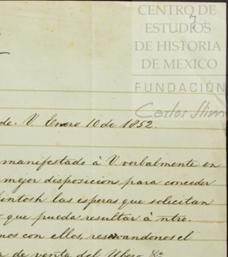 CENTRO DE
ESTUDIOS
DE HISTORIA
DE MÉXICO
FUNDACIÓN
Carlos Slim
de V. Enero 10 de 1852.
manifestado à V verbalmente en
mejor disposicion para conceder
Kintosh las esperas que solicitan
que pueda resultar à ntro.
mos con ellos, reservandonos el
de venta del